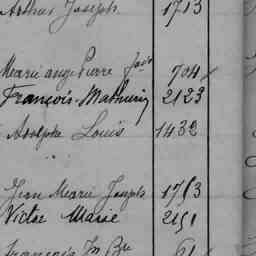 Arthur Joseph 1713
Marie ange Pierre 704
François-Mathurin 2123
Adolphe Louis 1432
Jean Marie Joseph 1753
Victor Marie 2151
François M